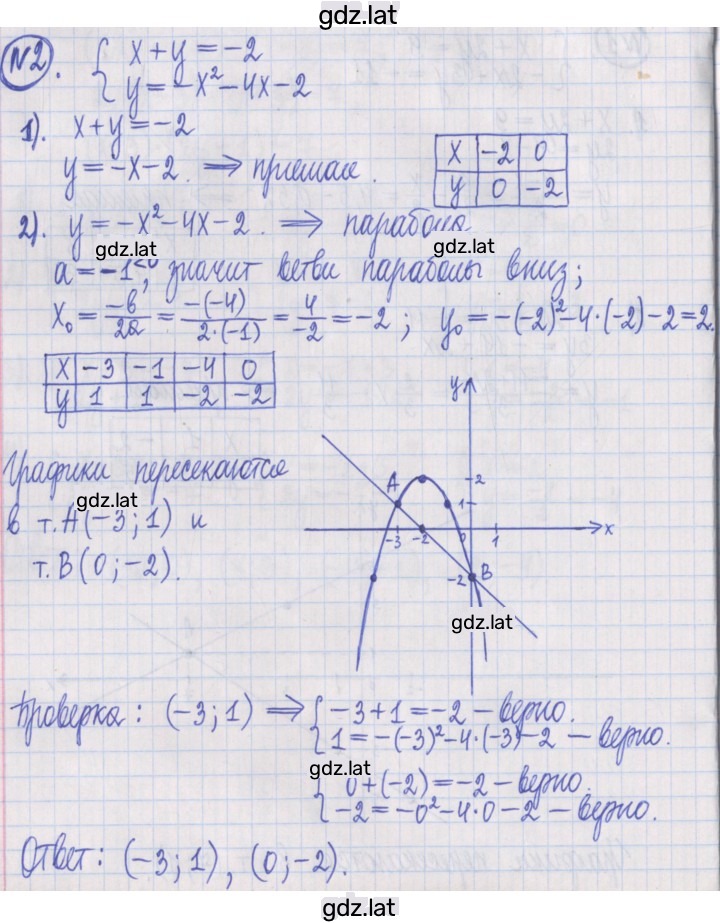 gdz.lat
№2. { x + y = -2
y = -x² - 4x - 2
1). x + y = -2
y = -x - 2. ⟹ прямая.
x -2 0
y 0 -2
2). y = -x² - 4x - 2. ⟹ парабола
gdz.lat gdz.lat
a = -1<0, значит ветви параболы вниз;
x₀ = -b/2a = -(-4)/2·(-1) = 4/-2 = -2; y₀ = -(-2)² - 4·(-2) - 2 = 2.
x -3 -1 -4 0
y 1 1 -2 -2
Графики пересекаются
gdz.lat
в т. A(-3; 1) и
т. B(0; -2).
y
A
2
1
-3 -2 0 1 x
-2 B
gdz.lat
Проверка: (-3; 1) ⟹ { -3 + 1 = -2 - верно.
1 = -(-3)² - 4·(-3) - 2 - верно.
gdz.lat
{ 0 + (-2) = -2 - верно.
-2 = -0² - 4·0 - 2 - верно.
Ответ: (-3; 1), (0; -2).
gdz.lat